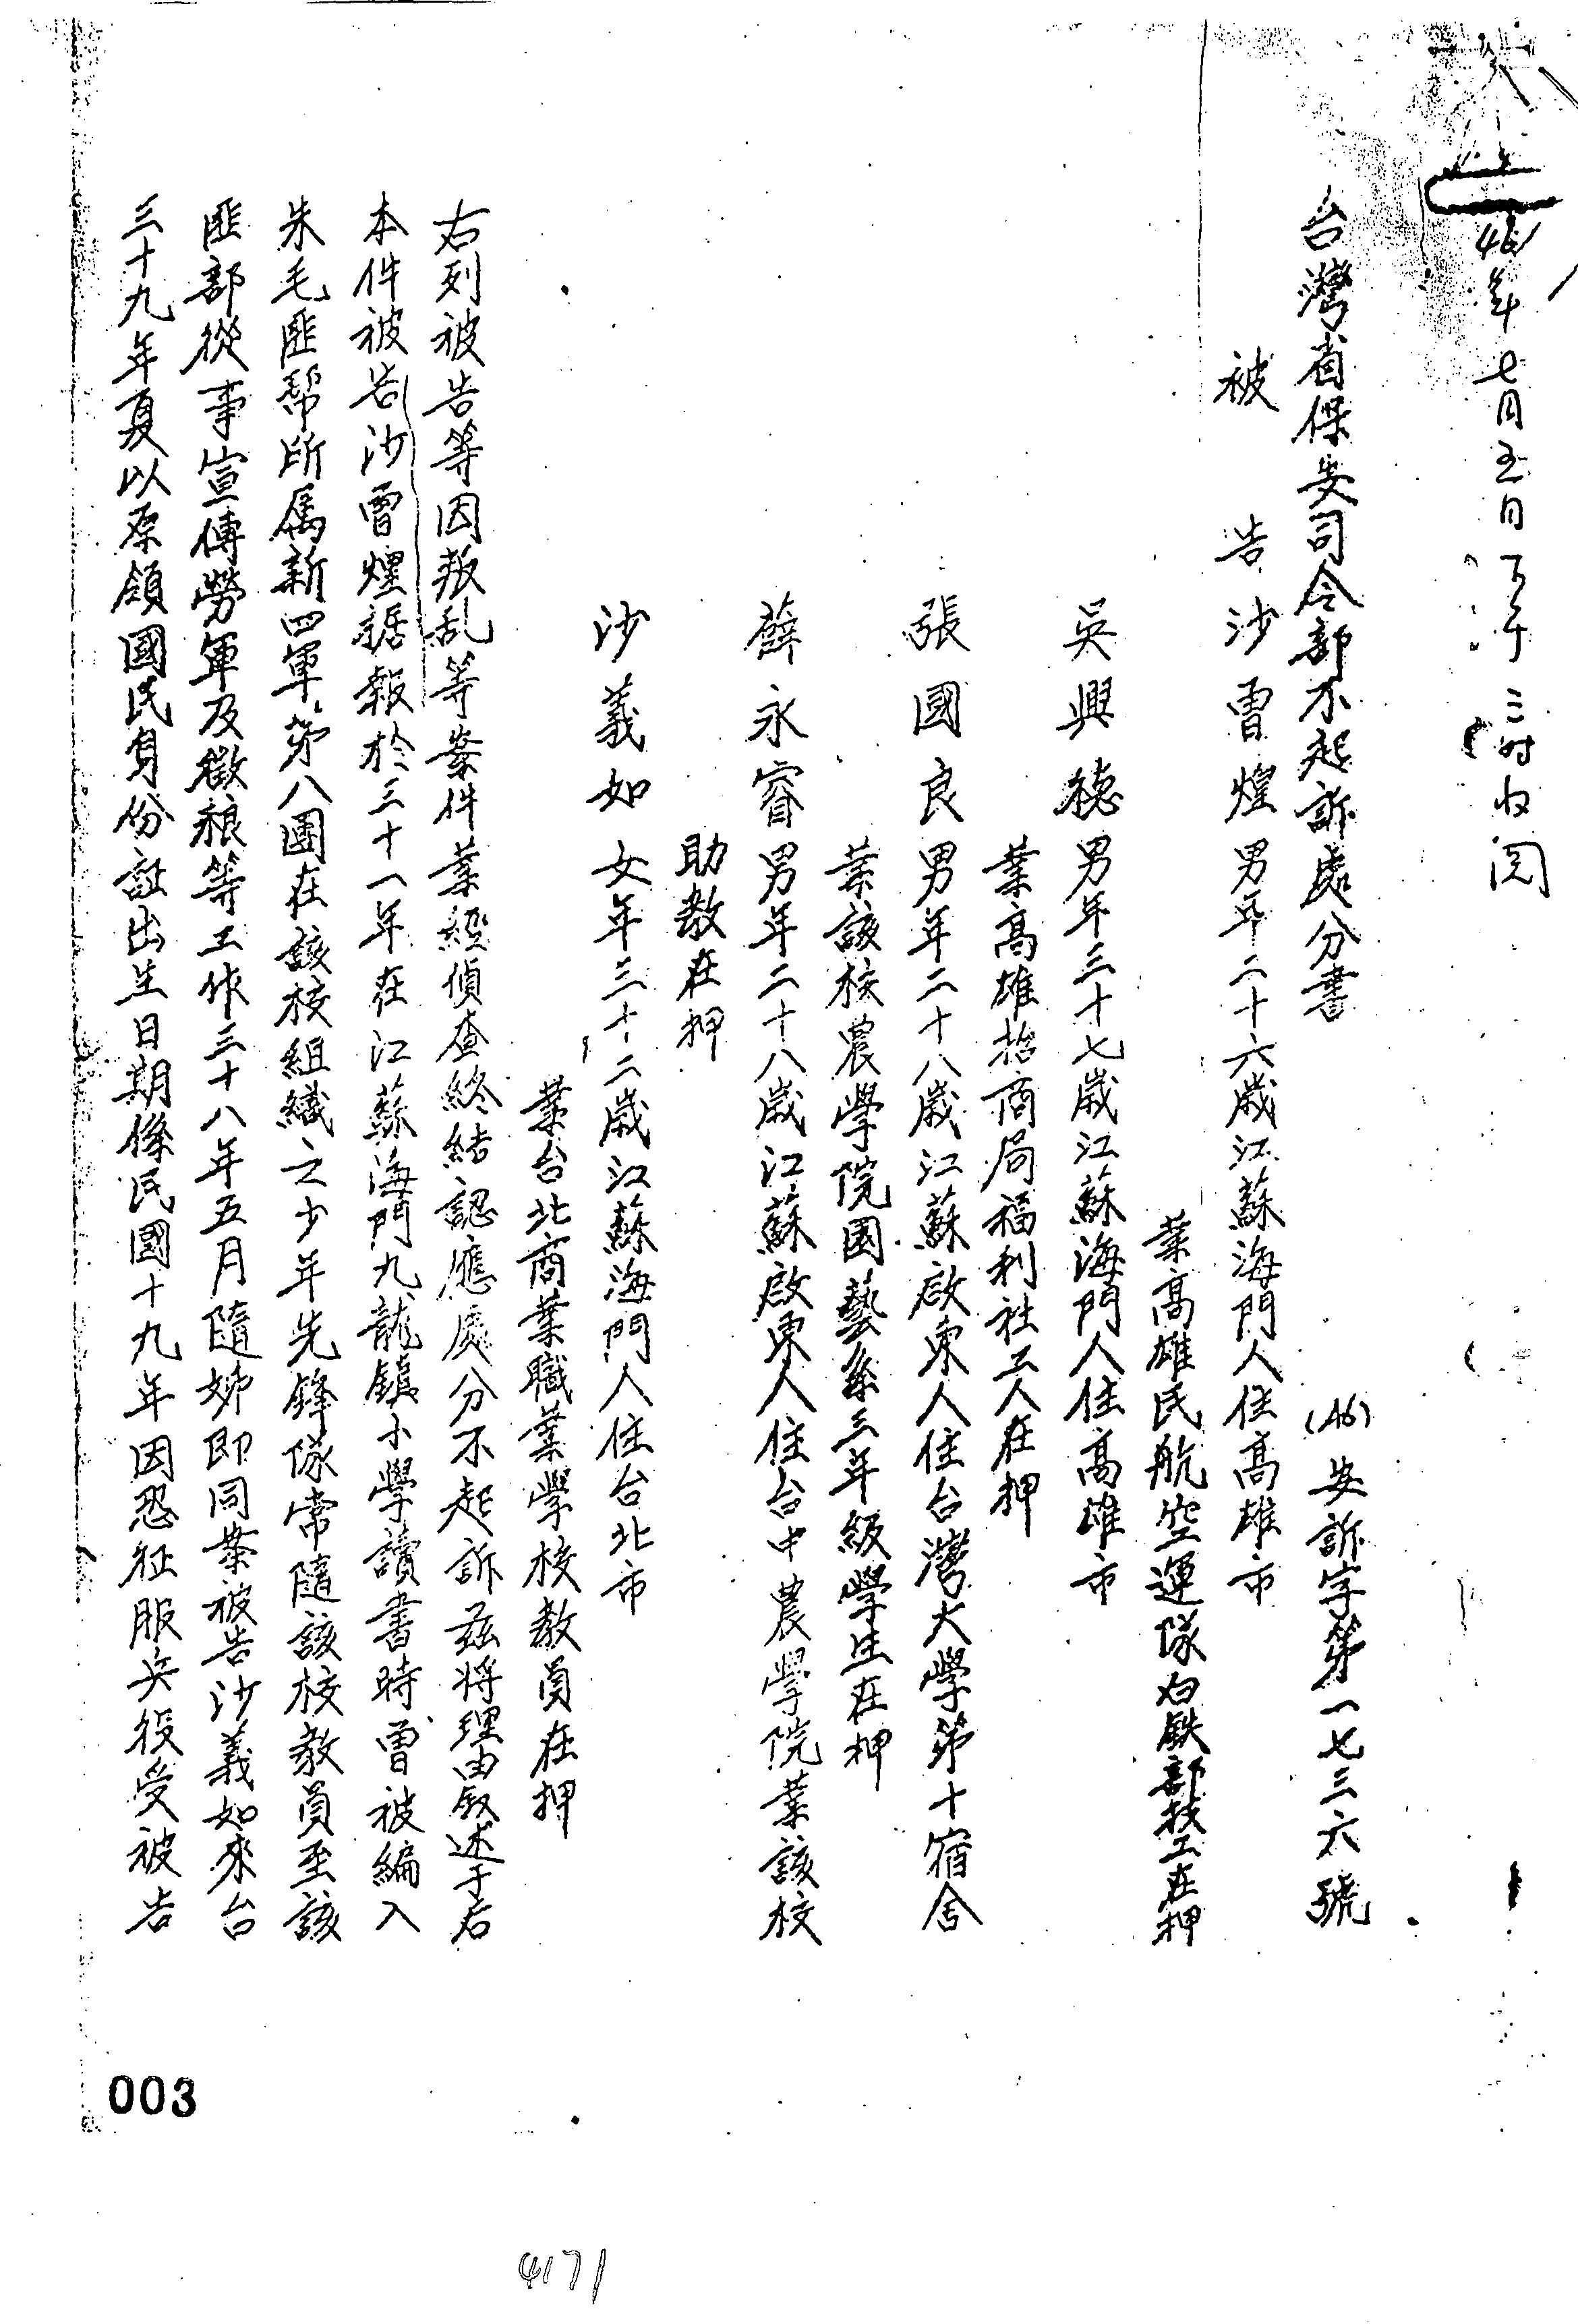 46年七月五日下午三时收閱
台灣省保安司令部不起訴處分書
(46)安訴字第一七三六號
被告沙曹煌男年二十六歲江蘇海門人住高雄市
業高雄民航空運隊白鉄部技工在押
吳興德男年三十七歲江蘇海門人住高雄市
業高雄招商局福利社工人在押
張國良男年二十八歲江蘇啟東人住台灣大學第十宿舍
業該校農學院園藝系三年級學生在押
薛永睿男年二十八歲江蘇啟東人住台中農學院業該校
助教在押
沙義如女年三十二歲江蘇海門人住台北市
業台北商業職業學校教員在押
右列被告等因叛乱等案件業經偵查終結認應處分不起訴茲將理由叙述于右
本件被告沙曹煌據報於三十一年在江蘇海門九龍鎮小學讀書時曾被編入
朱毛匪幫所屬新四軍第八團在該校組織之少年先鋒隊常隨該校教員至該
匪部從事宣傳勞軍及徵粮等工作三十八年五月隨姊即同案被告沙義如來台
三十九年夏以原領國民身份証出生日期係民國十九年因恐征服兵役受被告
003
4171